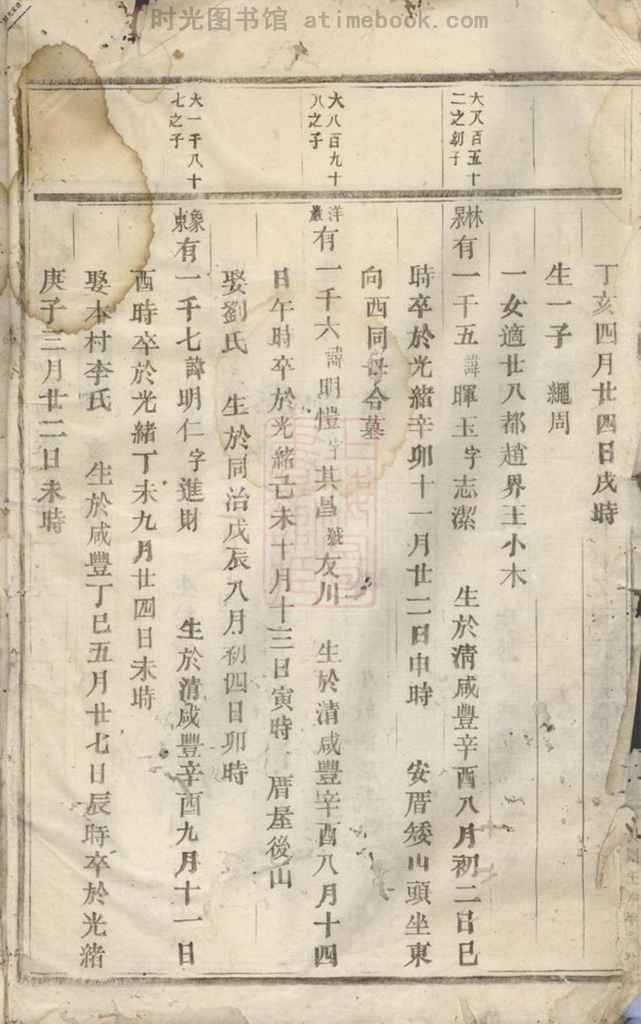 时光图书馆 atimebook.com
丁亥四月廿四日戌時
生一子 繩周
一女適廿八都趙界王小木
大八百五十
二之幼子
林泉有一千五諱暉玉字志潔 生於清咸豐辛酉八月初二日巳
時卒於光緒辛卯十一月廿二日申時 安厝矮山頭坐東
向西同母合墓
大八百九十
八之子
洋巖有一千六諱明愷字其昌號友川 生於清咸豐辛酉八月十四
日午時卒於光緒己未十月十三日寅時 厝屋後山
娶劉氏 生於同治戊辰八月初四日卯時
大一千八十
七之子
象東有一千七諱明仁字進財 生於清咸豐辛酉九月十一日
酉時卒於光緒丁未九月廿四日未時
娶本村李氏 生於咸豐丁巳五月廿七日辰時卒於光緒
庚子三月廿二日未時